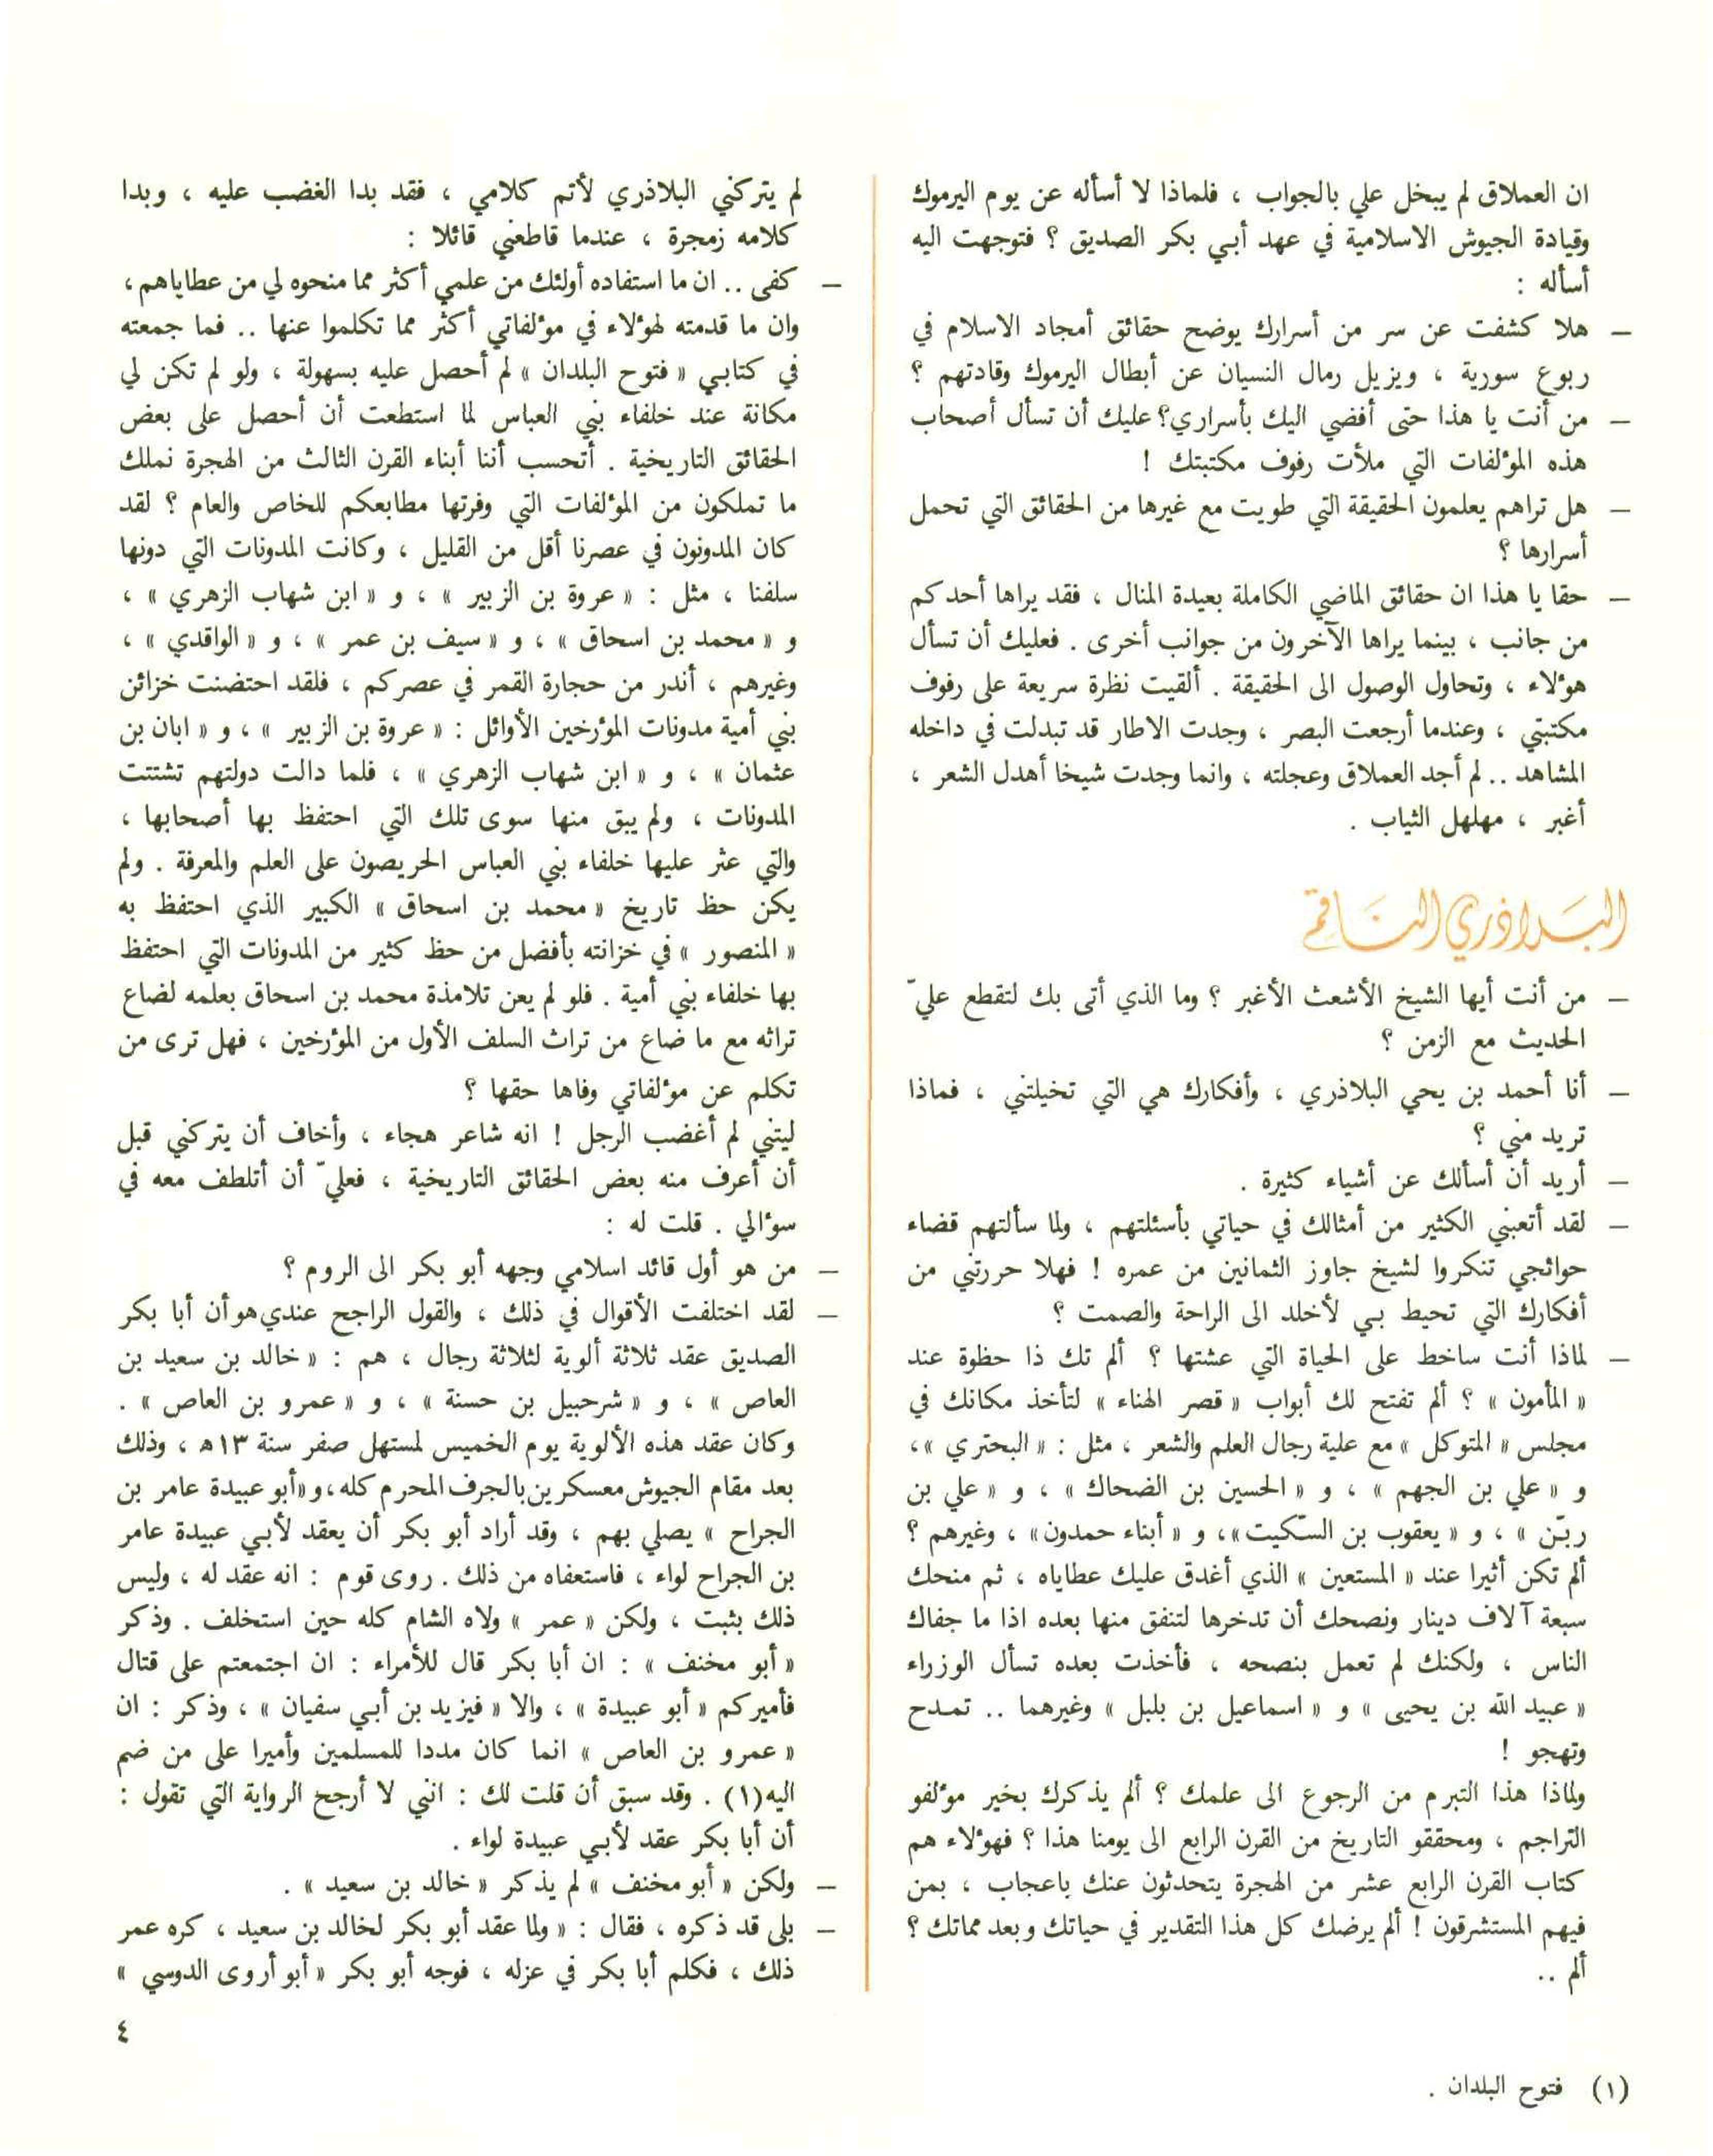 ان العملاق لم يبخل علي بالجواب ، فلماذا لا أسأله عن يوم اليرموك
وقيادة الجيوش الاسلامية في عهد أبي بكر الصديق ؟ فتوجهت اليه
أسأله :
— هلا كشفت عن سر من أسرارك يوضح حقائق أمجاد الاسلام في
ربوع سورية ، ويزيل رمال النسيان عن أبطال اليرموك وقادتهم ؟
— من أنت يا هذا حتى أفضي اليك بأسراري؟ عليك أن تسأل أصحاب
هذه المؤلفات التي ملأت رفوف مكتبتك !
— هل تراهم يعلمون الحقيقة التي طويت مع غيرها من الحقائق التي تحمل
أسرارها ؟
— حقا يا هذا ان حقائق الماضي الكاملة بعيدة المنال ، فقد يراها أحدكم
من جانب ، بينما يراها الآخرون من جوانب أخرى . فعليك أن تسأل
هؤلاء ، وتحاول الوصول الى الحقيقة . ألقيت نظرة سريعة على رفوف
مكتبتي ، وعندما أرجعت البصر ، وجدت الاطار قد تبدلت في داخله
المشاهد .. لم أجد العملاق وعجلته ، وانما وجدت شيخا أهدل الشعر ،
أغبر ، مهلهل الثياب .
البلاذري الناقم
— من أنت أيها الشيخ الأشعث الأغبر ؟ وما الذي أتى بك لتقطع عليّ
الحديث مع الزمن ؟
— أنا أحمد بن يحي البلاذري ، وأفكارك هي التي تخيلتني ، فماذا
تريد مني ؟
— أريد أن أسألك عن أشياء كثيرة .
— لقد أتعبني الكثير من أمثالك في حياتي بأسئلتهم ، ولما سألتهم قضاء
حوائجي تنكروا لشيخ جاوز الثمانين من عمره ! فهلا حررتني من
أفكارك التي تحيط بي لأخلد الى الراحة والصمت ؟
— لماذا أنت ساخط على الحياة التي عشتها ؟ ألم تك ذا حظوة عند
« المأمون » ؟ ألم تفتح لك أبواب « قصر الهناء » لتأخذ مكانك في
مجلس « المتوكل » مع علية رجال العلم والشعر ، مثل : « البحتري »،
و « علي بن الجهم » ، و « الحسين بن الضحاك » ، و « علي بن
ربّن » ، و « يعقوب بن السّكيت»، و « أبناء حمدون» ، وغيرهم ؟
ألم تكن أثيرا عند « المستعين » الذي أغدق عليك عطاياه ، ثم منحك
سبعة آلاف دينار ونصحك أن تدخرها لتنفق منها بعده اذا ما جفاك
الناس ، ولكنك لم تعمل بنصحه ، فأخذت بعده تسأل الوزراء
« عبيد الله بن يحيى » و « اسماعيل بن بلبل » وغيرهما .. تمدح
وتهجو !
ولماذا هذا التبرم من الرجوع الى علمك ؟ ألم يذكرك بخير مؤلفو
التراجم ، ومحققو التاريخ من القرن الرابع الى يومنا هذا ؟ فهؤلاء هم
كتاب القرن الرابع عشر من الهجرة يتحدثون عنك باعجاب ، بمن
فيهم المستشرقون ! ألم يرضك كل هذا التقدير في حياتك وبعد مماتك ؟
ألم ..
لم يتركني البلاذري لأتم كلامي ، فقد بدا الغضب عليه ، وبدا
كلامه زمجرة ، عندما قاطعني قائلا :
— كفى .. ان ما استفاده أولئك من علمي أكثر مما منحوه لي من عطاياهم،
وان ما قدمته لهؤلاء في مؤلفاتي أكثر مما تكلموا عنها .. فما جمعته
في كتابي « فتوح البلدان » لم أحصل عليه بسهولة ، ولو لم تكن لي
مكانة عند خلفاء بني العباس لما استطعت أن أحصل على بعض
الحقائق التاريخية . أتحسب أننا أبناء القرن الثالث من الهجرة نملك
ما تملكون من المؤلفات التي وفرتها مطابعكم للخاص والعام ؟ لقد
كان المدونون في عصرنا أقل من القليل ، وكانت المدونات التي دونها
سلفنا ، مثل : « عروة بن الزبير » ، و « ابن شهاب الزهري » ،
و « محمد بن اسحاق » ، و « سيف بن عمر » ، و « الواقدي » ،
وغيرهم ، أندر من حجارة القمر في عصركم ، فلقد احتضنت خزائن
بني أمية مدونات المؤرخين الأوائل : « عروة بن الزبير » ، و « ابان بن
عثمان » ، و « ابن شهاب الزهري » ، فلما دالت دولتهم تشتتت
المدونات ، ولم يبق منها سوى تلك التي احتفظ بها أصحابها ،
والتي عثر عليها خلفاء بني العباس الحريصون على العلم والمعرفة . ولم
يكن حظ تاريخ « محمد بن اسحاق » الكبير الذي احتفظ به
« المنصور » في خزانته بأفضل من حظ كثير من المدونات التي احتفظ
بها خلفاء بني أمية . فلو لم يعن تلامذة محمد بن اسحاق بعلمه لضاع
تراثه مع ما ضاع من تراث السلف الأول من المؤرخين ، فهل ترى من
تكلم عن مؤلفاتي وفاها حقها ؟
ليتني لم أغضب الرجل ! انه شاعر هجاء ، وأخاف أن يتركني قبل
أن أعرف منه بعض الحقائق التاريخية ، فعليّ أن أتلطف معه في
سؤالي . قلت له :
— من هو أول قائد اسلامي وجهه أبو بكر الى الروم ؟
— لقد اختلفت الأقوال في ذلك ، والقول الراجح عندي هو أن أبا بكر
الصديق عقد ثلاثة ألوية لثلاثة رجال ، هم : « خالد بن سعيد بن
العاص » ، و « شرحبيل بن حسنة » ، و « عمرو بن العاص » .
وكان عقد هذه الألوية يوم الخميس لمستهل صفر سنة ١٣ه ، وذلك
بعد مقام الجيوش معسكرين بالجرف المحرم كله، و«أبو عبيدة عامر بن
الجراح » يصلي بهم ، وقد أراد أبو بكر أن يعقد لأبي عبيدة عامر
بن الجراح لواء ، فاستعفاه من ذلك . روى قوم : انه عقد له ، وليس
ذلك بثبت ، ولكن « عمر » ولاه الشام كله حين استخلف . وذكر
« أبو مخنف » : ان أبا بكر قال للأمراء : ان اجتمعتم على قتال
فأميركم « أبو عبيدة » ، والا « فيزيد بن أبي سفيان » ، وذكر : ان
« عمرو بن العاص » انما كان مددا للمسلمين وأميرا على من ضم
اليه(١) . وقد سبق أن قلت لك : انني لا أرجح الرواية التي تقول :
أن أبا بكر عقد لأبي عبيدة لواء .
— ولكن « أبو مخنف » لم يذكر « خالد بن سعيد » .
— بلى قد ذكره ، فقال : « ولما عقد أبو بكر لخالد بن سعيد ، كره عمر
ذلك ، فكلم أبا بكر في عزله ، فوجه أبو بكر « أبو أروى الدوسي »
٤
(١) فتوح البلدان .